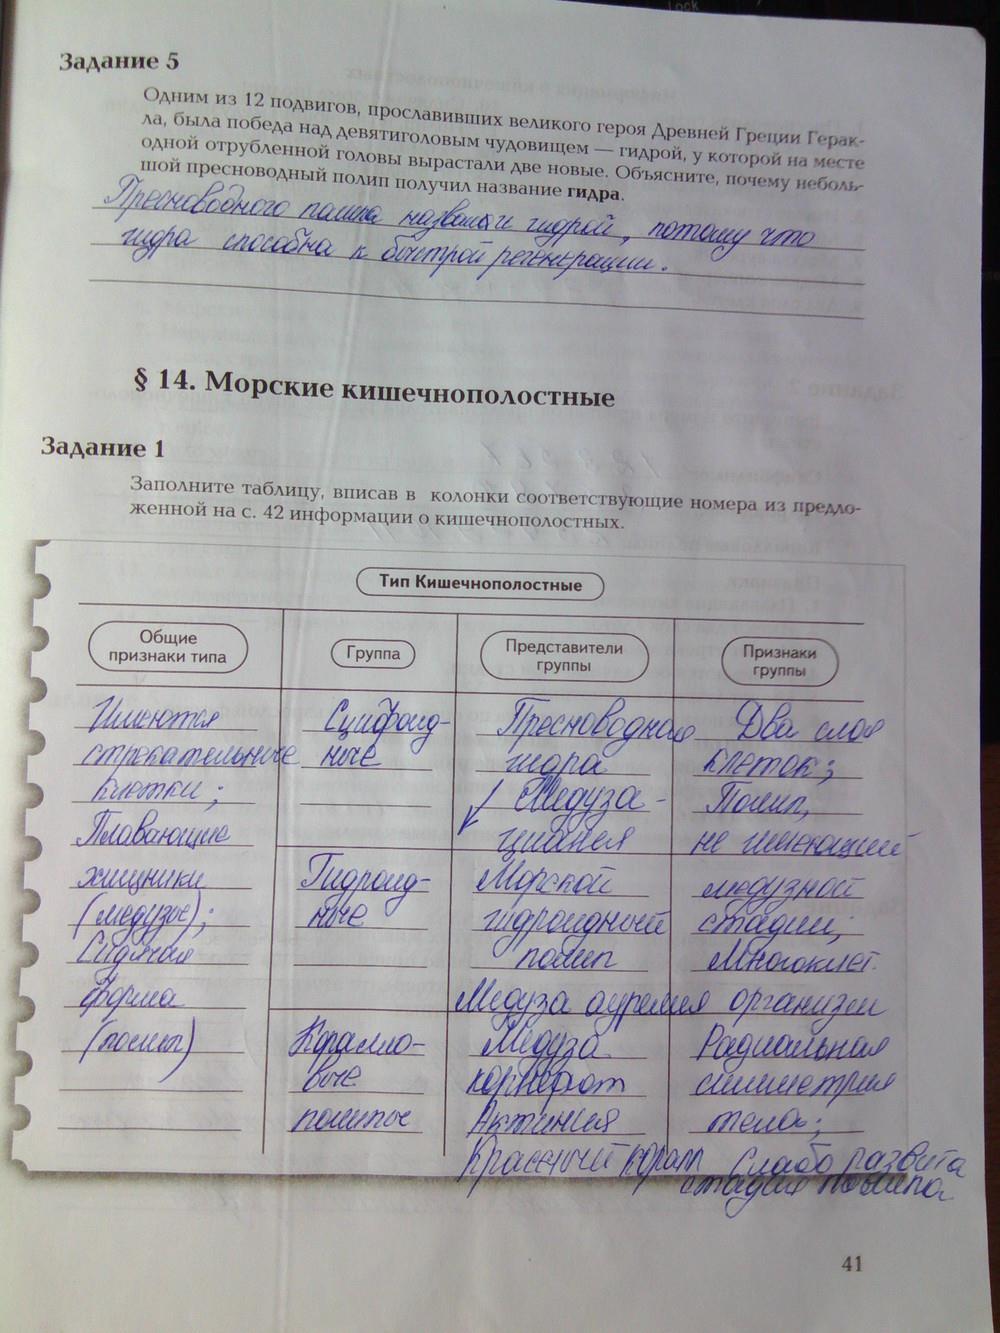 Задание 5
Одним из 12 подвигов, прославивших великого героя Древней Греции Герак-
ла, была победа над девятиголовым чудовищем — гидрой, у которой на месте
одной отрубленной головы вырастали две новые. Объясните, почему неболь-
шой пресноводный полип получил название гидра.
Пресноводного полипа назвали гидрой, потому что
гидра способна к быстрой регенерации.
§ 14. Морские кишечнополостные
Задание 1
Заполните таблицу, вписав в колонки соответствующие номера из предло-
женной на с. 42 информации о кишечнополостных.
Тип Кишечнополостные
Общие
признаки типа
Группа
Представители
группы
Признаки
группы
Имеются
стрекательные
клетки;
Плавающие
хищники
(медузы);
Сидячая
форма
(полип)
Сцифоид-
ные
Гидроид-
ные
Коралло-
вые
полипы
Пресноводная
гидра
Медуза-
цианея
Морской
гидроидный
полип
Медуза аурелия
Медуза
корнерот
Актиния
Красный коралл
Два слоя
клеток;
Полип,
не имеющий
медузной
стадии;
Многоклет.
организм
Радиальная
симметрия
тела;
Слабо развита
стадия полипа
41